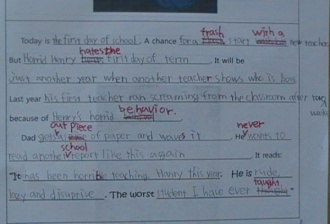 Today is the first day of school. A chance for a fresh start with a new teacher
But Horrid Henry hates the first day of term. It will be
just another year when another teacher shows who is boss
Last year his first teacher ran screaming from the classroom after two weeks
because of Henry's horrid behavior.
Dad out piece of paper and waves it. He never wants to
read another school report like this again. It reads:
"It has been horrible teaching Henry this year. He is rude,
lazy and . The worst student I have ever taught."